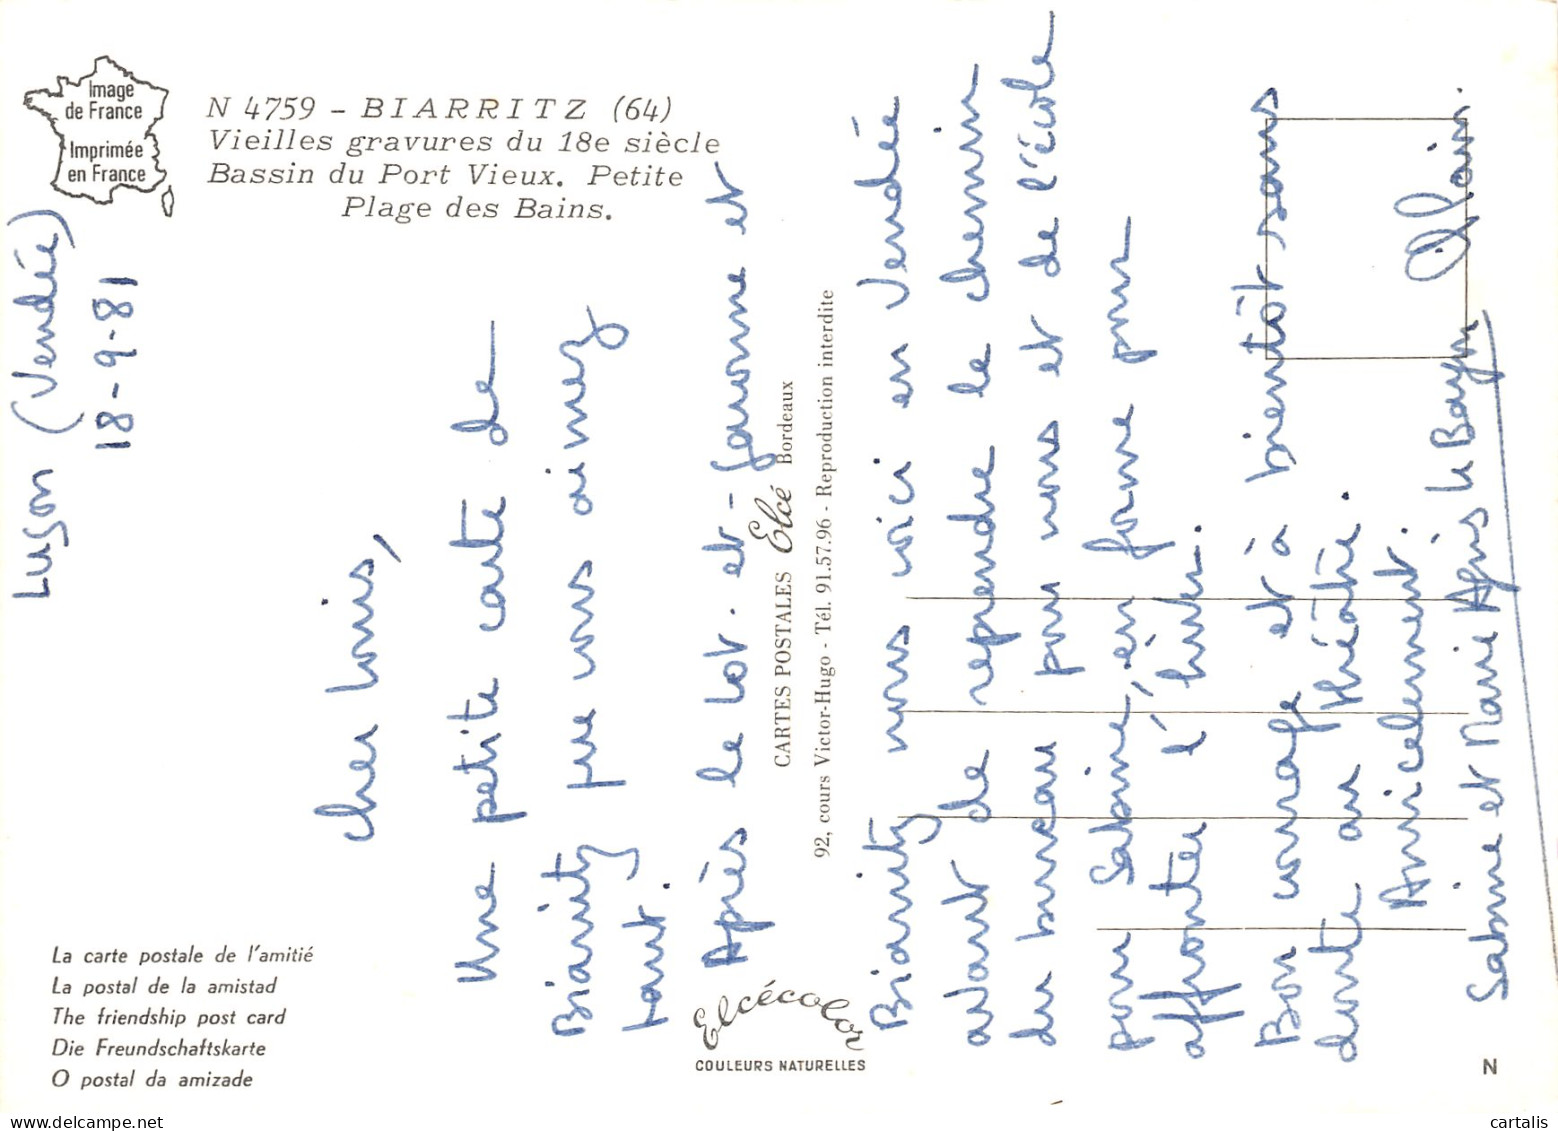 Image
de France
Imprimée
en France
N 4759 - BIARRITZ (64)
Vieilles gravures du 18e siècle
Bassin du Port Vieux. Petite
Plage des Bains.
Luçon (Vendée)
18-9-81
Cher Louis,
Une petite carte de
Biarritz que vous aimez
tant.
Après le Lot-et-Garonne et
Biarritz nous voici en Vendée
avant de reprendre le chemin
du bureau pour nous et de l'école
pour Sabine, en forme pour
affronter l'hiver.
Bon courage et à bientôt sans
doute au théâtre.
Amicalement.
Alain.
Sabine et Marie Agnès Le Bayon
CARTES POSTALES Elcé Bordeaux
92, cours Victor-Hugo - Tél. 91.57.96 - Reproduction interdite
La carte postale de l'amitié
La postal de la amistad
The friendship post card
Die Freundschaftskarte
O postal da amizade
Elcécolor
COULEURS NATURELLES
N
cartalis